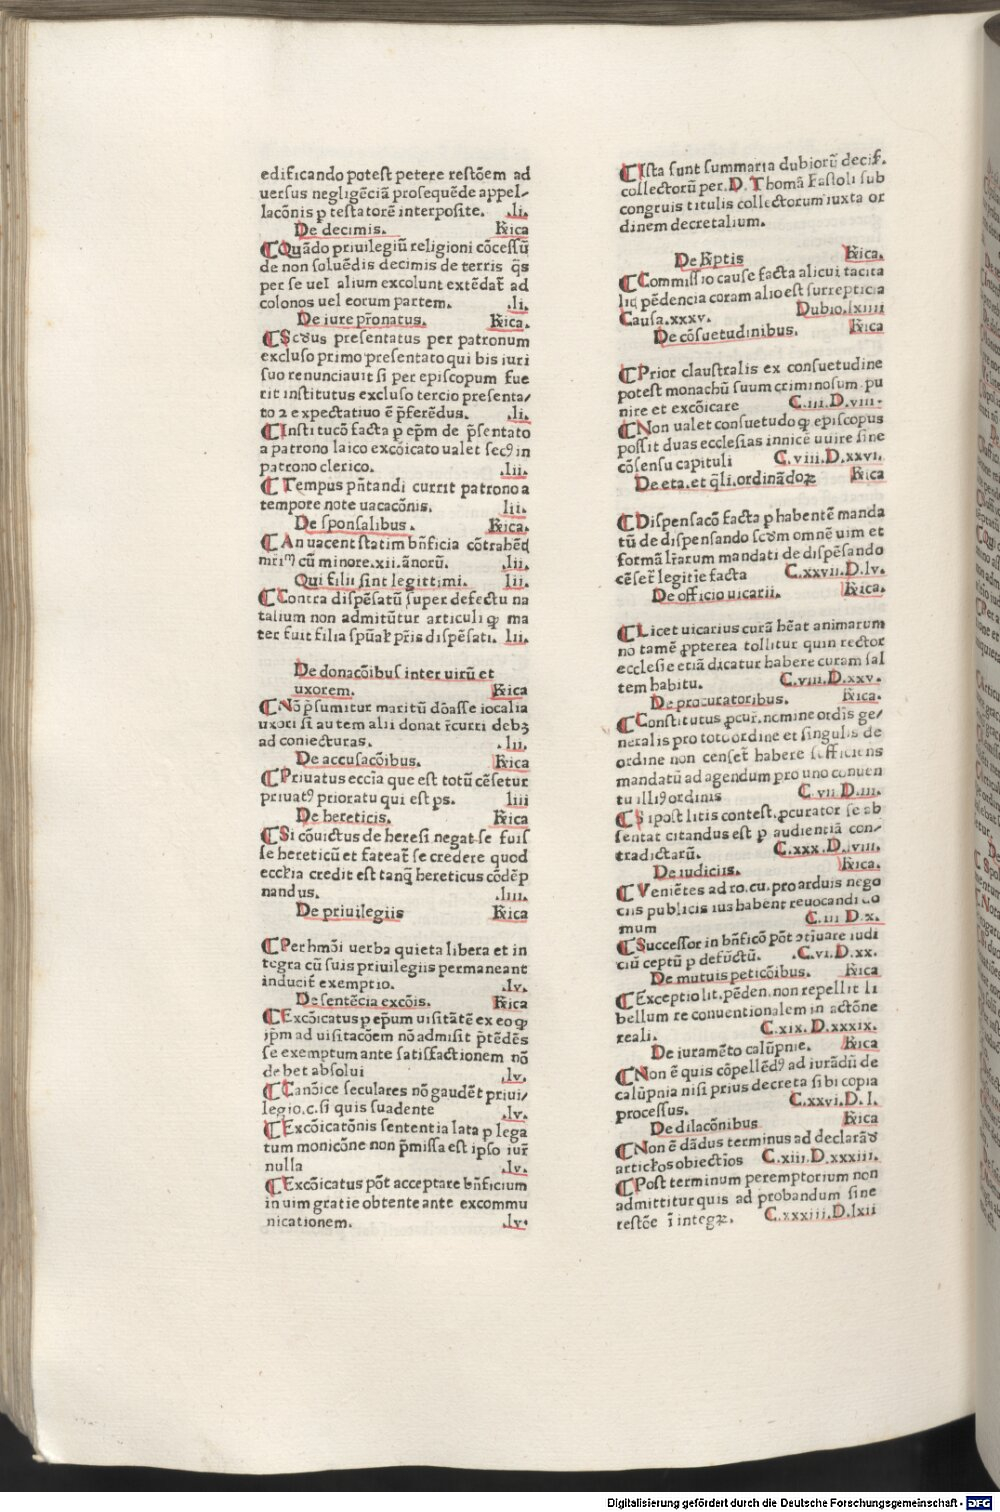 edificando potest petere restõem ad
uersus negligẽciã prosequẽde appel⸗
lacõnis p testatorẽ interposite. .li.
De decimis. Rica
Quãdo priuilegiũ religioni cõcessũ
de non soluẽdis decimis de terris q̃s
per se uel alium excolunt extẽdat̃ ad
colonos uel eorum partem. .li.
De iure pr̃onatus. Rica.
Scd̃us presentatus per patronum
excluso primo presentato qui bis iuri
suo renunciauit si per episcopum fue
rit institutus excluso tercio presenta/
to ⁊ expectatiuo ẽ p̃ferẽdus. .li.
Institucõ facta p ep̃m de p̃sentato
a patrono laico excõicato ualet secꝰ in
patrono clerico. .lii.
Tempus pñtandi currit patrono a
tempore note uacacõnis. lii.
De sponsalibus. Rica.
An uacent statim bñficia cõtrahẽti
mr̃im̃ cũ minore .xii. ãnorũ. .lii.
Qui filii sint legittimi. lii.
Contra dispẽsatũ super defectu na
talium non admitũtur articuli ꝙ ma
ter fuit filia spũał pr̃is dispẽsati. lii.
De donacõibus inter uirũ et
uxorem. Rica
Nõ p̃sumitur maritũ dõasse iocalia
uxori si autem alii donat r̃curri debꝫ
ad coniecturas. .lii.
De accusacõibus. Rica
Priuatus eccĩa que est totũ cẽsetur
priuatꝰ prioratu qui est ps. liii
De hereticis. Rica
Si cõuictus de heresi negat se fuis
se hereticũ et fateat̃ se credere quod
eccl̃ia credit est tanq̃ hereticus cõdẽp
nandus. .liii.
De priuilegiis Rica
Per hmõi uerba quieta libera et in
tegra cũ suis priuilegiis permaneant
inducit̃ exemptio. .lv.
De sentẽcia excõis. Rica
Excõicatus p ep̃um uisitãtẽ ex eo ꝙ
ip̃m ad uisitacõem nõ admisit p̃tẽdẽs
se exemptum ante satisfactionem nõ
debet absolui .lv.
Canõice seculares nõ gaudẽt priui/
legio .c. si quis suadente .lv.
Excõicatõnis sententia lata p lega
tum monicõne non p̃missa est ipso iur̃
nulla .lv.
Excõicatus põt acceptare bñficium
in uim gratie obtente ante excommu
nicationem. .lv.
Ista sunt summaria dubiorũ decis.
collectorũ per. D. Thomã Fastoli sub
congruis titulis collectorum iuxta or
dinem decretalium.
De R̃ptis Rica.
Commissio cause facta alicui tacita
litꝫ pẽdencia coram alio est surrepticia
Causa. xxxv. Dubio. lxiiii
De cõsuetudinibus. Rica
Prior claustralis ex consuetudine
potest monachũ suum criminosum pu
nire et excõicare C. iii. D. viii.
Non ualet consuetudo ꝙ episcopus
possit duas ecclesias innicẽ uuire sine
cõsensu capituli C. viii. D. xxvi.
De eta. et q̃li. ordinãdoꝝ Rica
Dispensacõ facta p habentẽ manda
tũ de dispensando scd̃m omnẽ uim et
formã lr̃arum mandati de dispẽsando
cẽset̃ legitĩe facta C. xxvii. D. lv.
De officio uicarii. Rica.
Licet uicarius curã hẽat animarum
nõ tamẽ ꝓpterea tollitur quin rector
ecclesie etiã dicatur habere curam sal
tem habitu. C. viii. D. xxv.
De procuratoribus. Rica.
Constitutus ꝓcur̃. nomine ordĩs ge/
neralis pro toto ordine et singulis de
ordine non censet̃ habere sufficiens
mandatũ ad agendum pro uno conuen
tu illiꝰ ordinis C. vii D. iii.
Si post litis contest. ꝓcurator se ab
sentat citandus est p audienciã con/
tradictarũ. C. xxx. D. lviii.
De iudiciis. Rica.
Veniẽtes ad ro. cu. pro arduis nego
ciis publicis ius habent reuocandi do
mum C. iii D. x.
Successor in bñficõ põt ↄtĩuare iudi
ciũ ceptũ p defũctũ. .C. vi. D. xx.
De mutuis peticõibus. Rica
Exceptio lit. pẽden. non repellit li
bellum reconuentionalem in actõne
reali. C. xix. D. xxxix.
De iuramẽto calũpnie. Rica
Non ẽ quis cõpellẽdꝰ ad iurãdũ de
calũpnia nisi prius decreta sibi copia
processus. C. xxvi. D. I.
De dilacõnibus Rica
Non ẽ dãdus terminus ad declarãd
articłos obiectĩos C. xiii. D. xxxiii.
Post terminum peremptorium non
admittitur quis ad probandum sine
restõe ĩ integꝝ. C. xxxiii. D. lxii
Digitalisierung gefördert durch die Deutsche Forschungsgemeinschaft - DFG